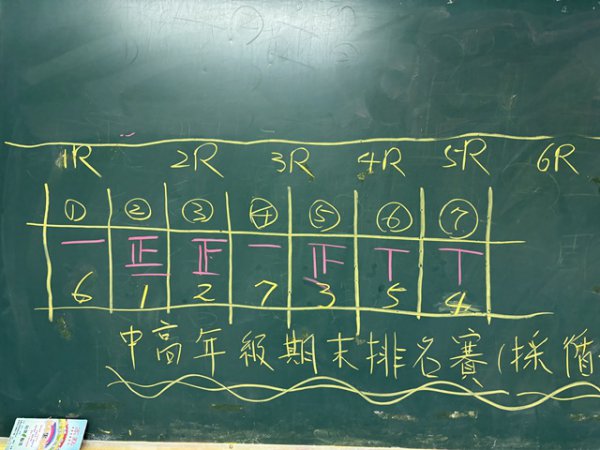 1R 2R 3R 4R 5R 6R
① ② ③ ④ ⑤ ⑥ ⑦
一 正一 正 一 正 T T
6 1 2 7 3 5 4
中高年級期末排名賽(採循